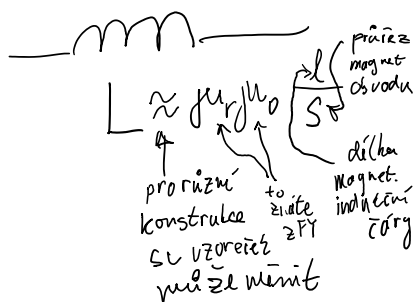 L ≈ μᵣμ₀ l/S
průřez
magnet
obvodu
délka
magnet.
indukční
čáry
pro různí
konstrukce
se vzoreček
může měnit
to
znáte
z FY